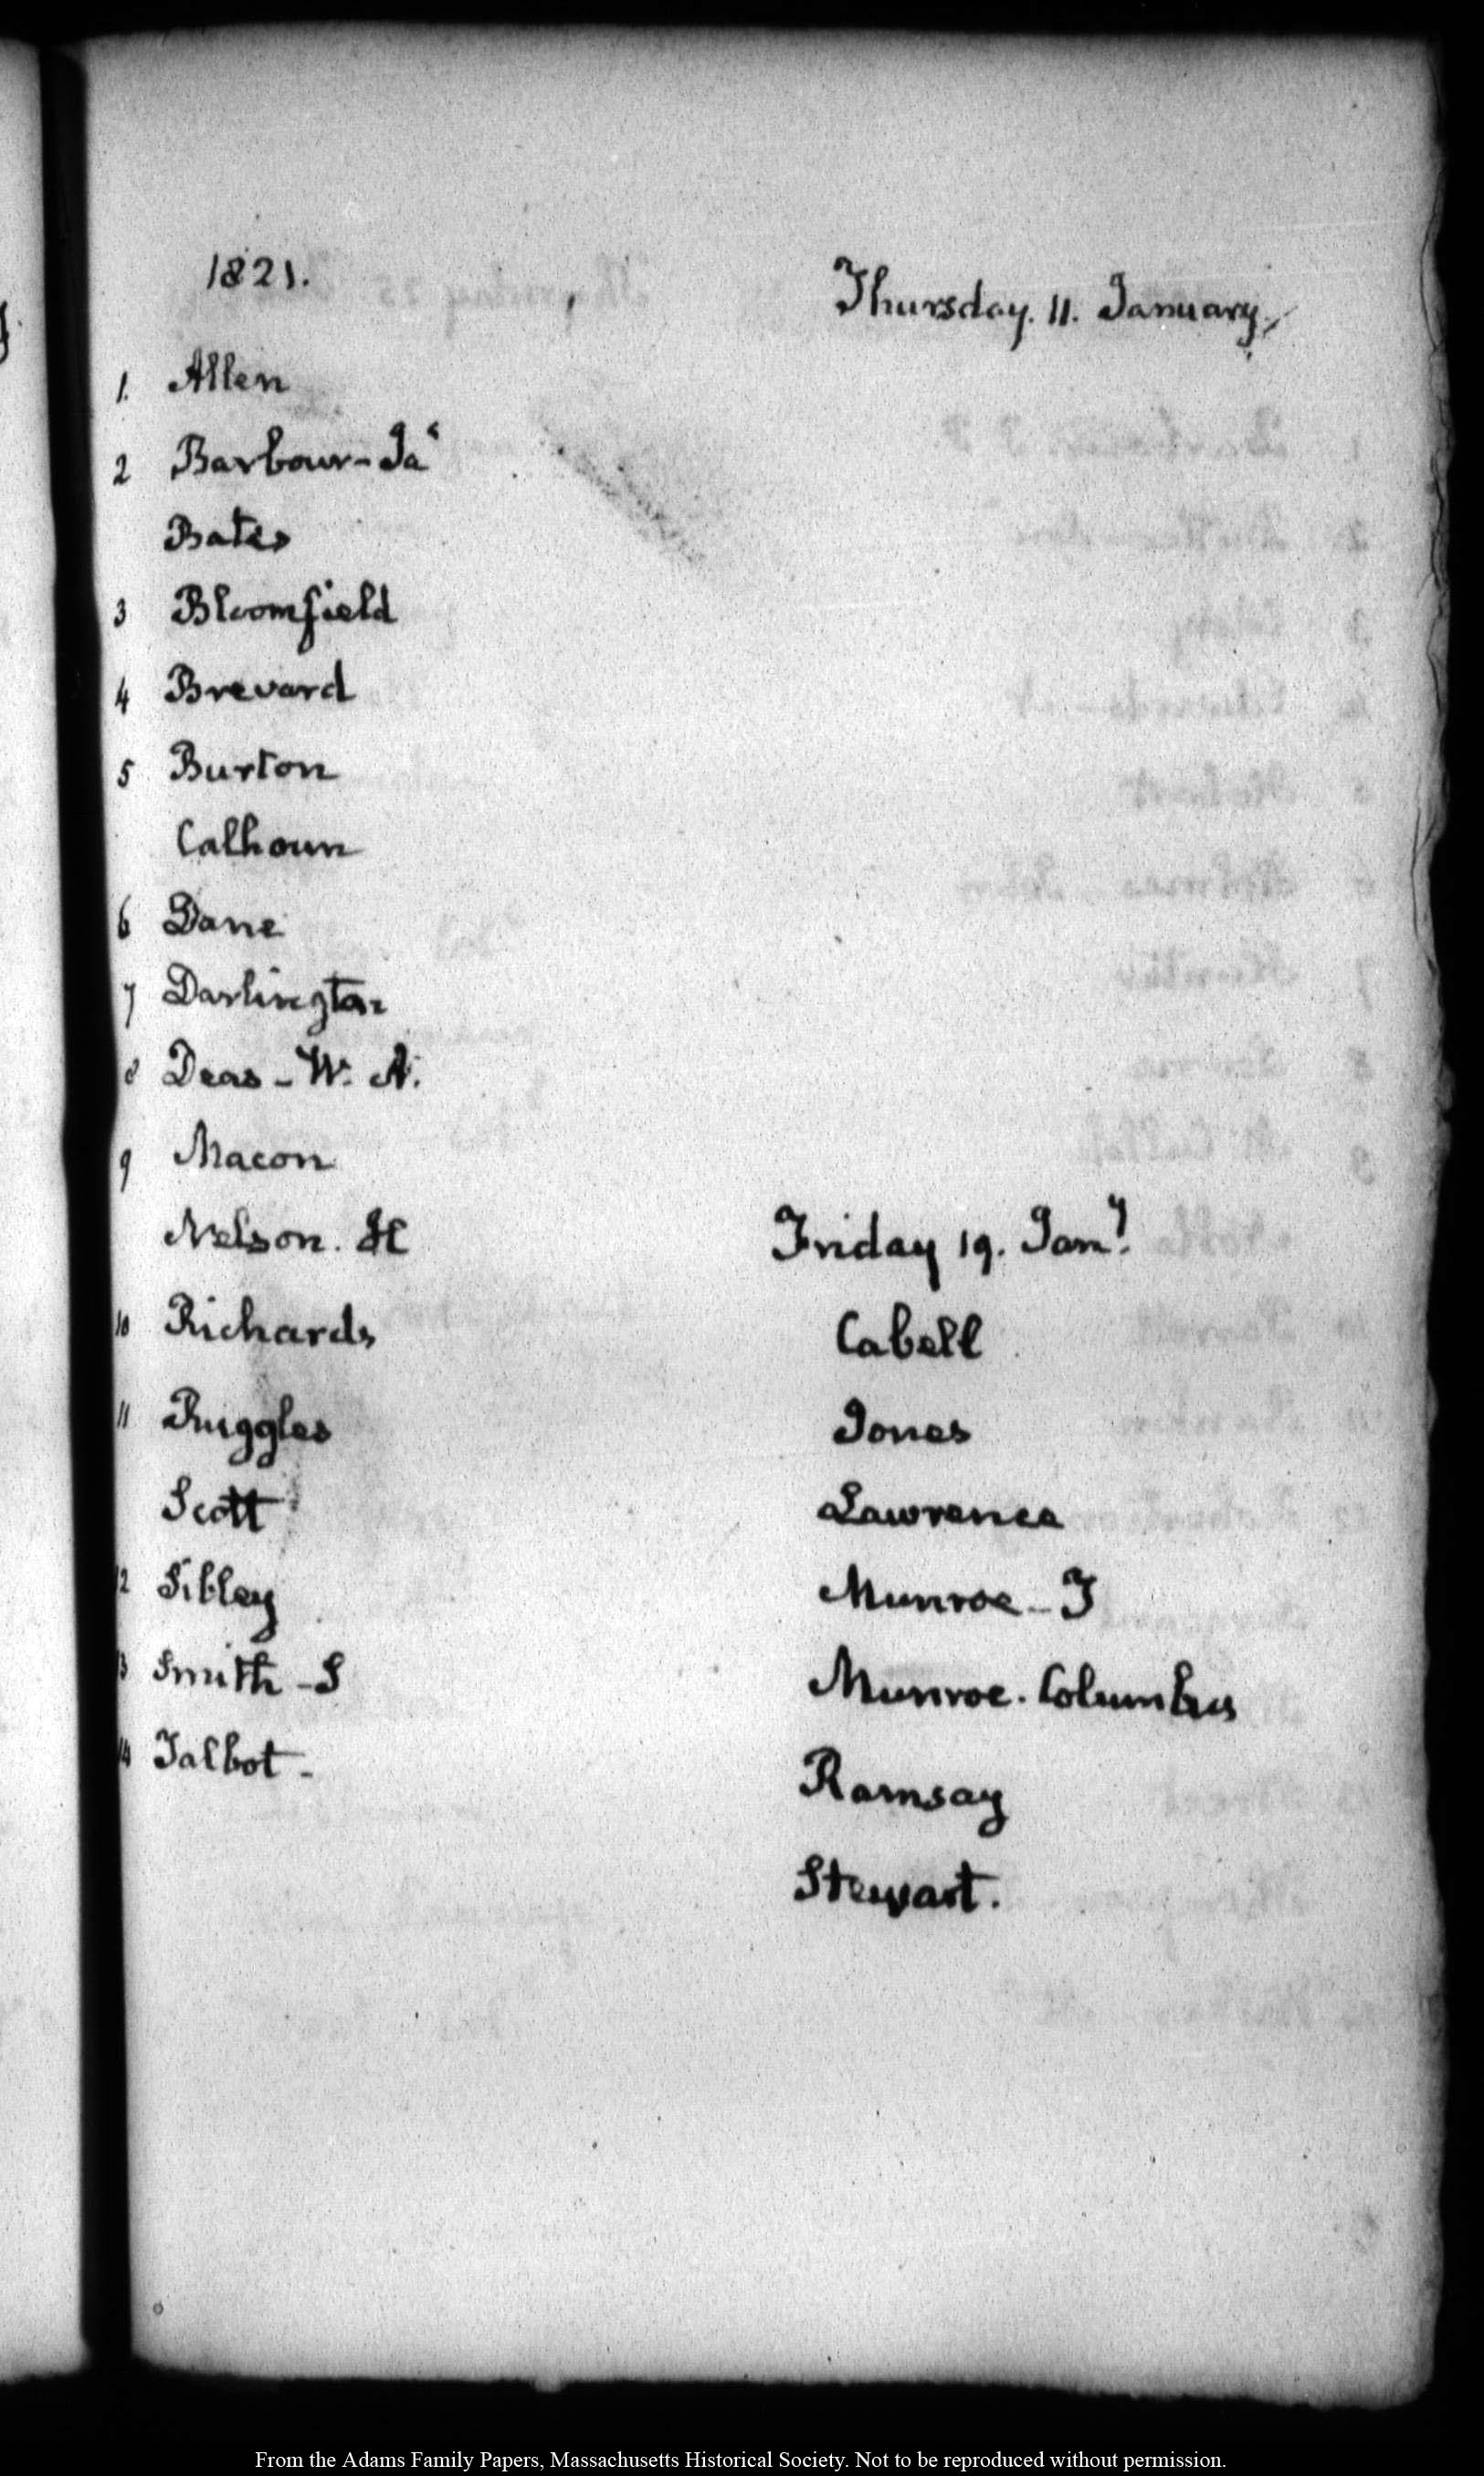 1821.
Thursday. 11. January.
1. Allen
2 Barbour - Jas
Bates
3 Bloomfield
4 Brevard
5 Burton
Calhoun
6 Dane
7 Darlington
8 Deas - W. A.
9 Macon
Nelson. H
10 Richards
11 Ruggles
Scott
12 Sibley
13 Smith - S
14 Talbot -
Friday 19. Jany.
Cabell
Jones
Lawrence
Munroe - J
Munroe. Columbus
Ramsay
Stewart.
From the Adams Family Papers, Massachusetts Historical Society. Not to be reproduced without permission.